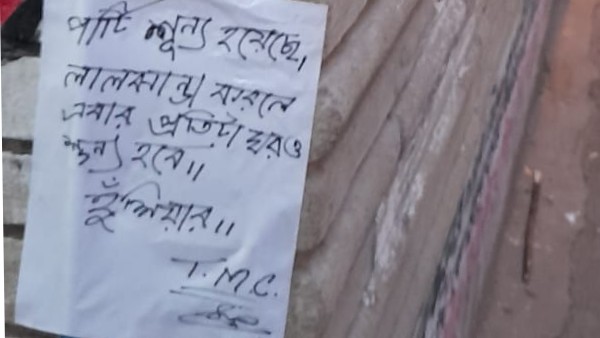 পার্টি শূন্য হয়েছে,
লালঝান্ডা করলে
এবার প্রতিটা ঘরও
শূন্য হবে৷৷
হুঁশিয়ার৷৷
T.M.C.